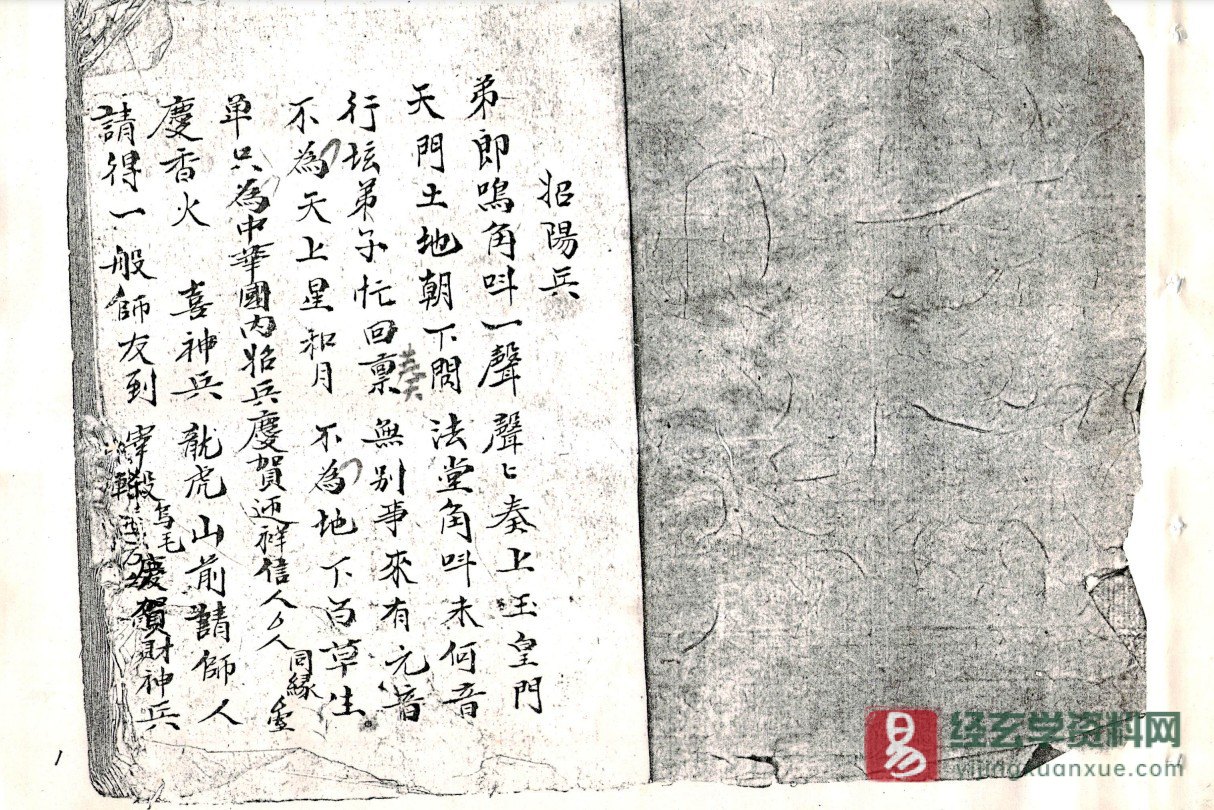 招陽兵
弟郎鳴角叫一聲 聲〻奏上玉皇門
天門土地朝下問 法堂角叫未何音
行坛弟子忙回禀奏 無别事來有元音
不為天上星和月 不為地下百草生
单只為中華國内招兵慶賀迎祥信人
同緣
慶香火 喜神兵 龍虎山前請師人
請得一般師友到 宰殺
烏毛
慶賀財神兵
1
易 经玄学资料网
yijingxuanxue.com